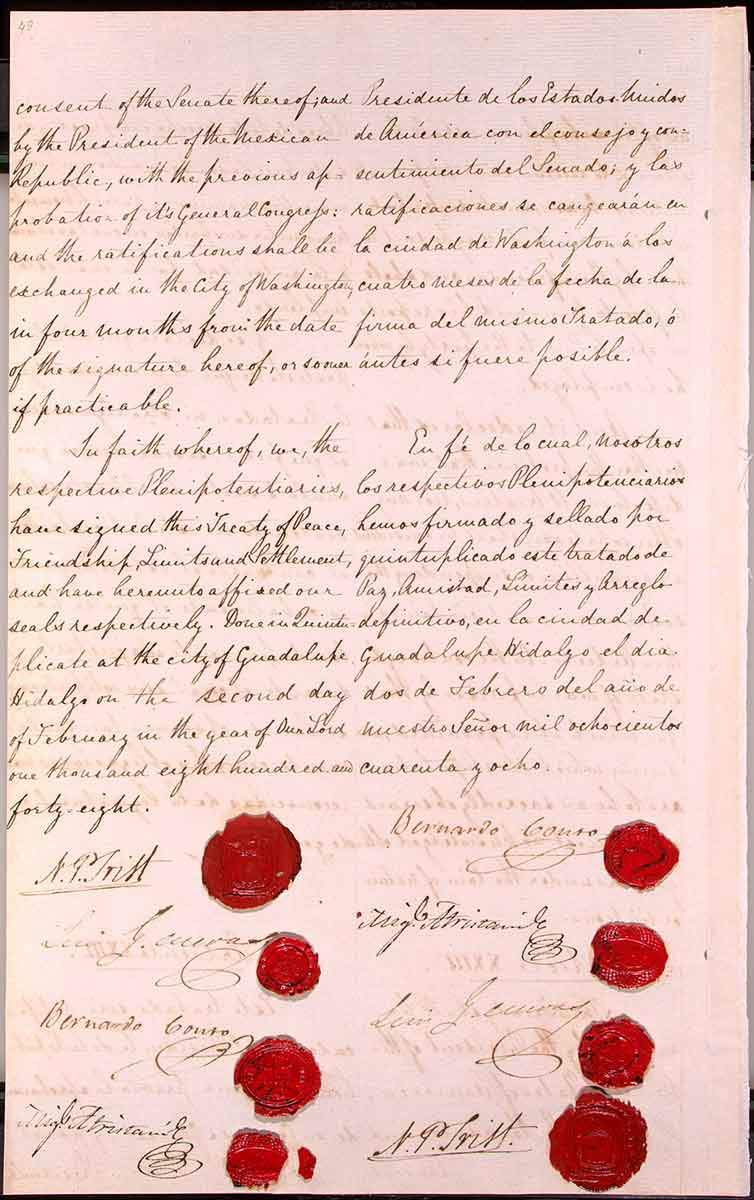 49
consent of the Senate thereof; and
by the President of the Mexican
Republic, with the previous ap=
probation of it's General Congress:
and the ratifications shall be
exchanged in the City of Washington,
in four months from the date
of the signature hereof, or sooner
if practicable.
In faith whereof, we, the
respective Plenipotentiaries,
have signed this Treaty of Peace,
Friendship, Limits and Settlement,
and have hereunto affixed our
seals respectively. Done in Quintu-
plicate at the city of Guadalupe
Hidalgo on the second day
of February in the year of Our Lord
one thousand eight hundred and
forty-eight.
N. P. Trist
Luis G. Cuevas
Bernardo Couto
Migl. Atristain
Presidente de los Estados Unidos
de América con el consejo y con=
sentimiento del Senado; y las
ratificaciones se cangearán en
la ciudad de Washington á los
cuatro meses de la fecha de la
firma del mismo Tratado, ó
ántes si fuere posible.
En fé de lo cual, nosotros
los respectivos Plenipotenciarios
hemos firmado y sellado por
quintuplicado este tratado de
Paz, Amistad, Límites y Arreglo
definitivo, en la ciudad de
Guadalupe Hidalgo el dia
dos de Febrero del año de
nuestro Señor mil ochocientos
cuarenta y ocho.
Bernardo Couto
Migl. Atristain
Luis G. Cuevas
N. P. Trist.